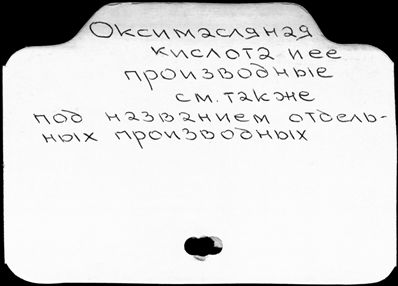 Оксимасляная
кислота и ее
производные
см. также
под названием отдель-
ных производных